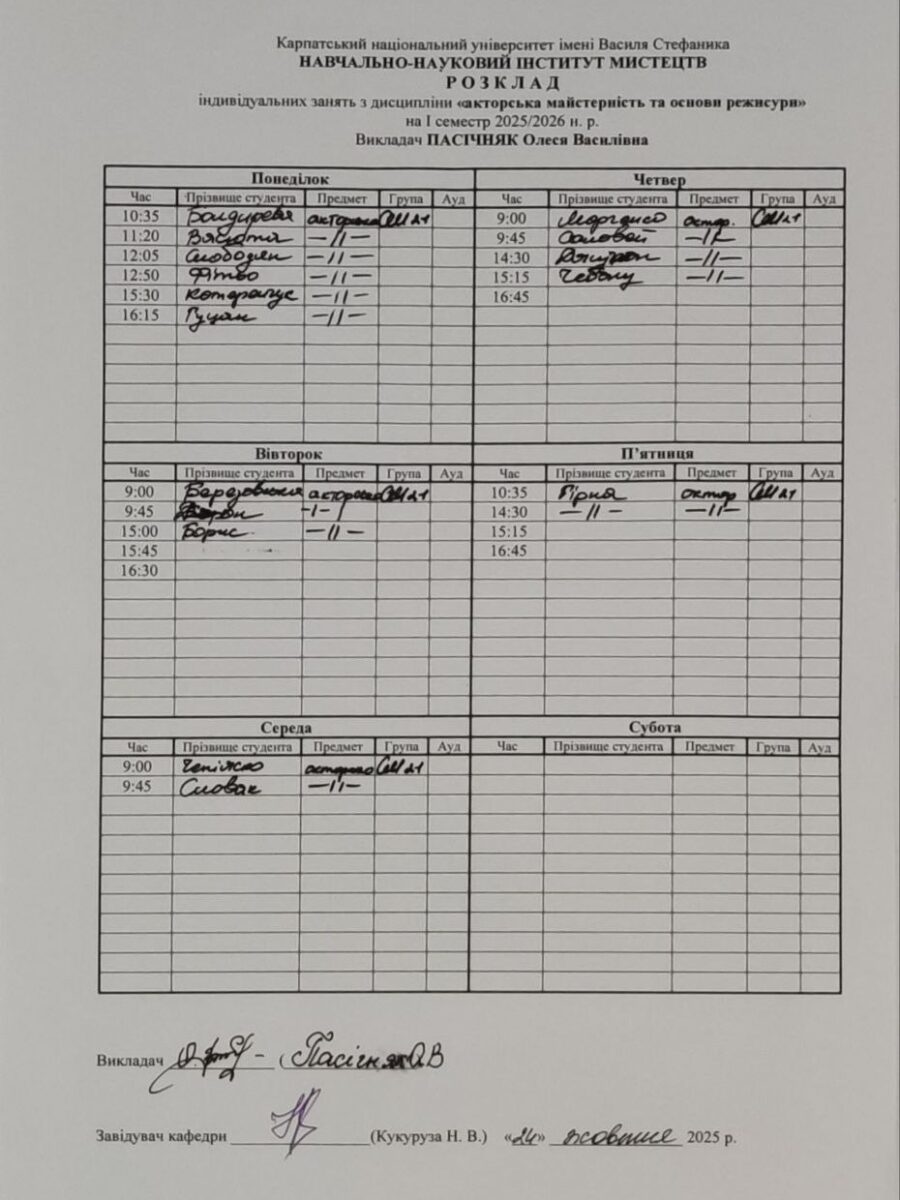 Карпатський національний університет імені Василя Стефаника
НАВЧАЛЬНО-НАУКОВИЙ ІНСТИТУТ МИСТЕЦТВ
Р О З К Л А Д
індивідуальних занять з дисципліни «акторська майстерність та основи режисури»
на І семестр 2025/2026 н. р.
Викладач ПАСІЧНЯК Олеся Василівна
Понеділок
Час Прізвище студента Предмет Група Ауд
10:35 акторська СМ 21
11:20 —//—
12:05 Слободян —//—
12:50 Фітьо —//—
15:30 —//—
16:15 Гуцан —//—
Четвер
Час Прізвище студента Предмет Група Ауд
9:00 актор. СМ 21
9:45 Соловей —//—
14:30 —//—
15:15 —//—
16:45
Вівторок
Час Прізвище студента Предмет Група Ауд
9:00 акторська СМ 21
9:45
15:00 Борис —//—
15:45
16:30
П'ятниця
Час Прізвище студента Предмет Група Ауд
10:35 Гірня актор СМ 21
14:30 —//— —//—
15:15
16:45
Середа
Час Прізвище студента Предмет Група Ауд
9:00 акторська СМ 21
9:45 Словак —//—
Субота
Час Прізвище студента Предмет Група Ауд
Викладач ( Пасічняк О.В
Завідувач кафедри (Кукуруза Н. В.) «24» жовтня 2025 р.